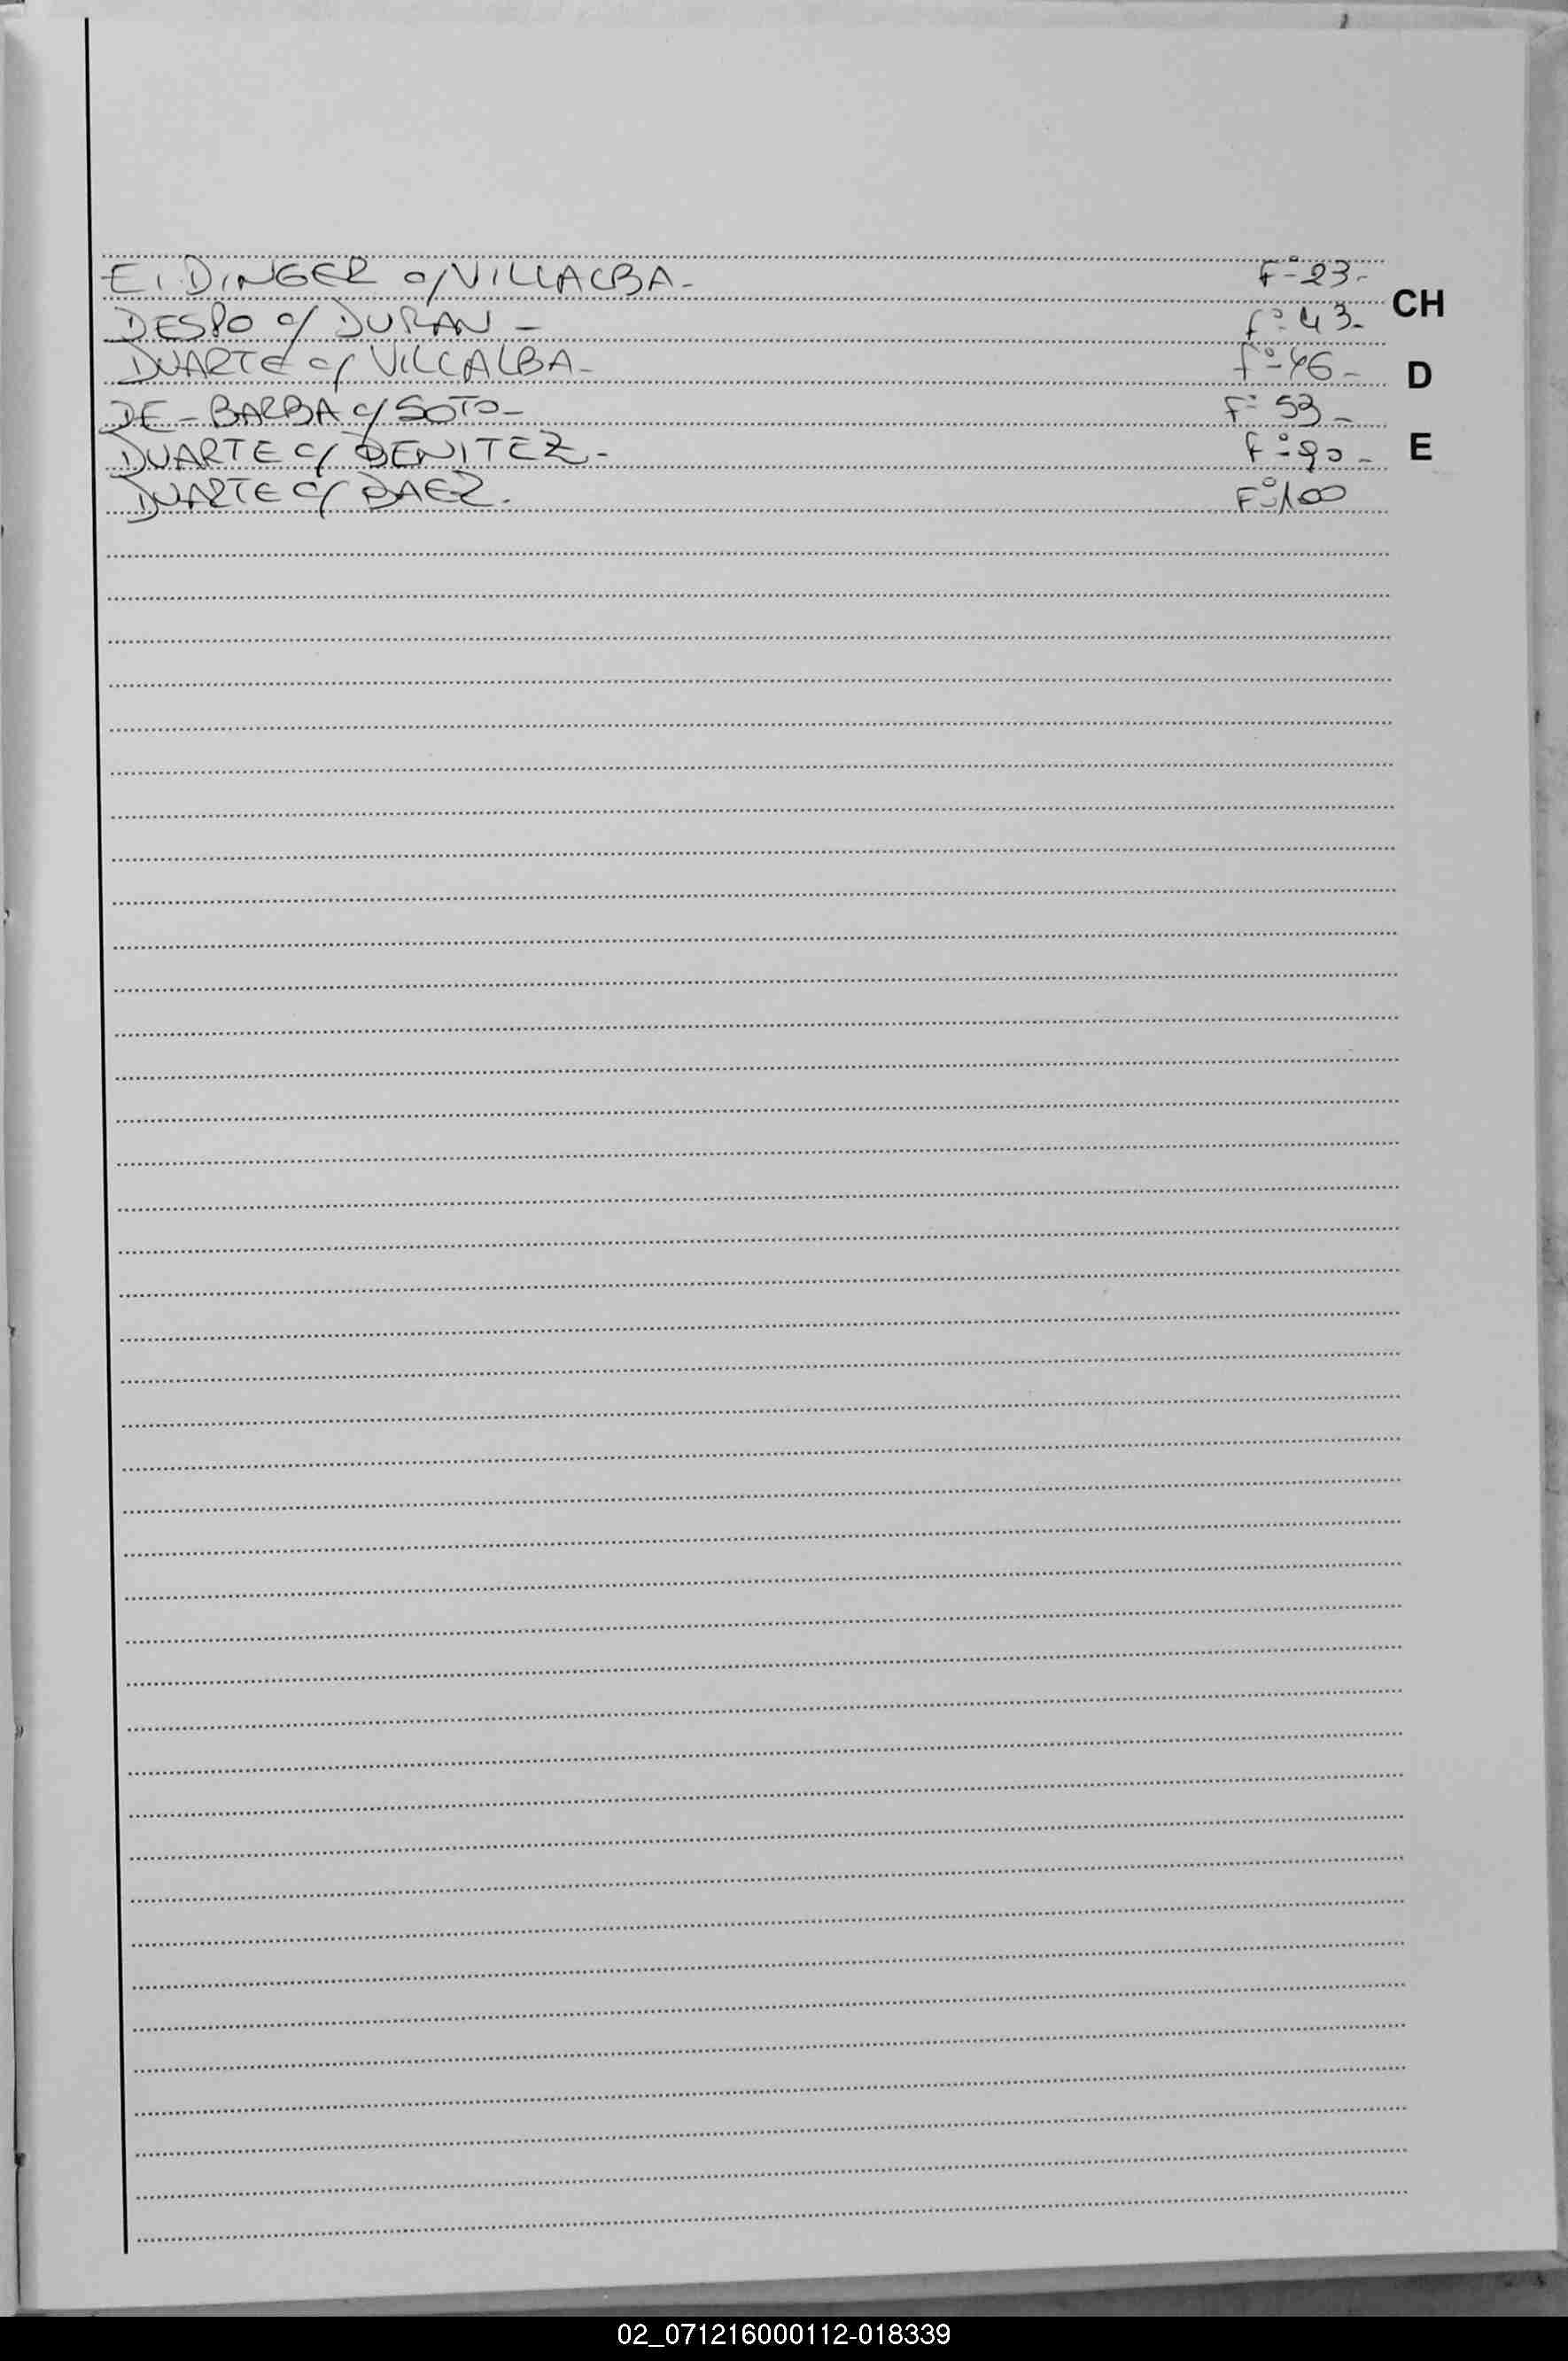 EIDINGER c/ VILLALBA- F° 23-
CH
DESPO c/ DURAN - f° 43-
DUARTE c/ VILLALBA- f° 46-
D
DE-BARBA c/ SOTO- F° 53-
DUARTE c/ BENITEZ- F° 90-
E
DUARTE c/ BAEZ. F° 100
02_071216000112-018339